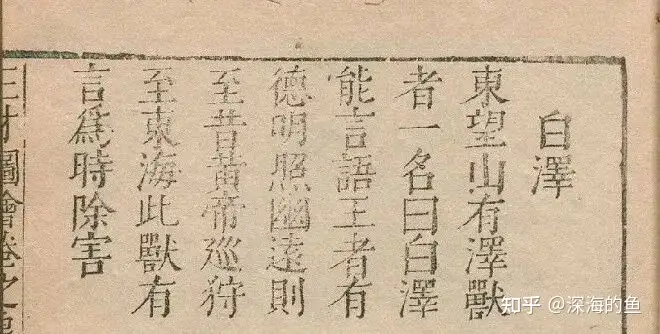 白澤
東望山有澤獸
者一名曰白澤
能言語王者有
德明照幽遠則
至昔黃帝巡狩
至東海此獸有
言為時除害
三才圖會卷之
知乎 @深海的鱼